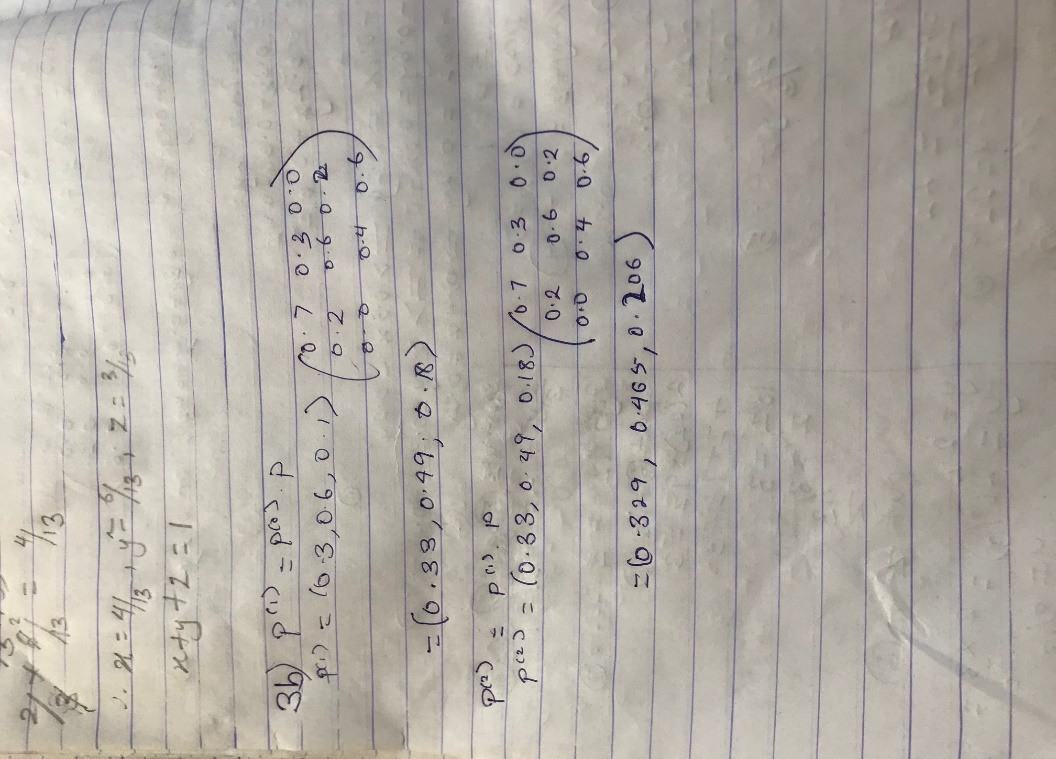 2/13 + 2/13 = 4/13
∴ x = 4/13, y = 6/13, z = 3/13
x+y+z = 1
3b) p(1) = p(0) . p
p(1) = (0.3, 0.6, 0.1) (0.7 0.3 0.0
0.2 0.6 0.2
0.0 0.4 0.6)
= (0.33, 0.49, 0.18)
p(2) = p(1) . p
p(2) = (0.33, 0.49, 0.18) (0.7 0.3 0.0
0.2 0.6 0.2
0.0 0.4 0.6)
= (0.329, 0.465, 0.206)